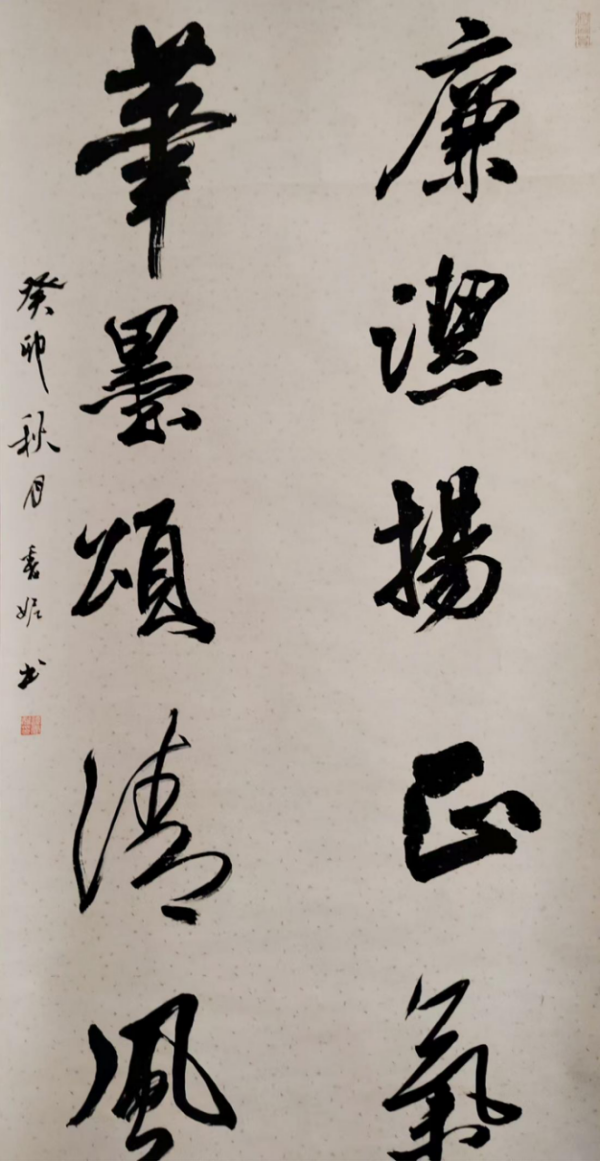 廉潔揚正氣
華墨頌清風
癸卯秋月書